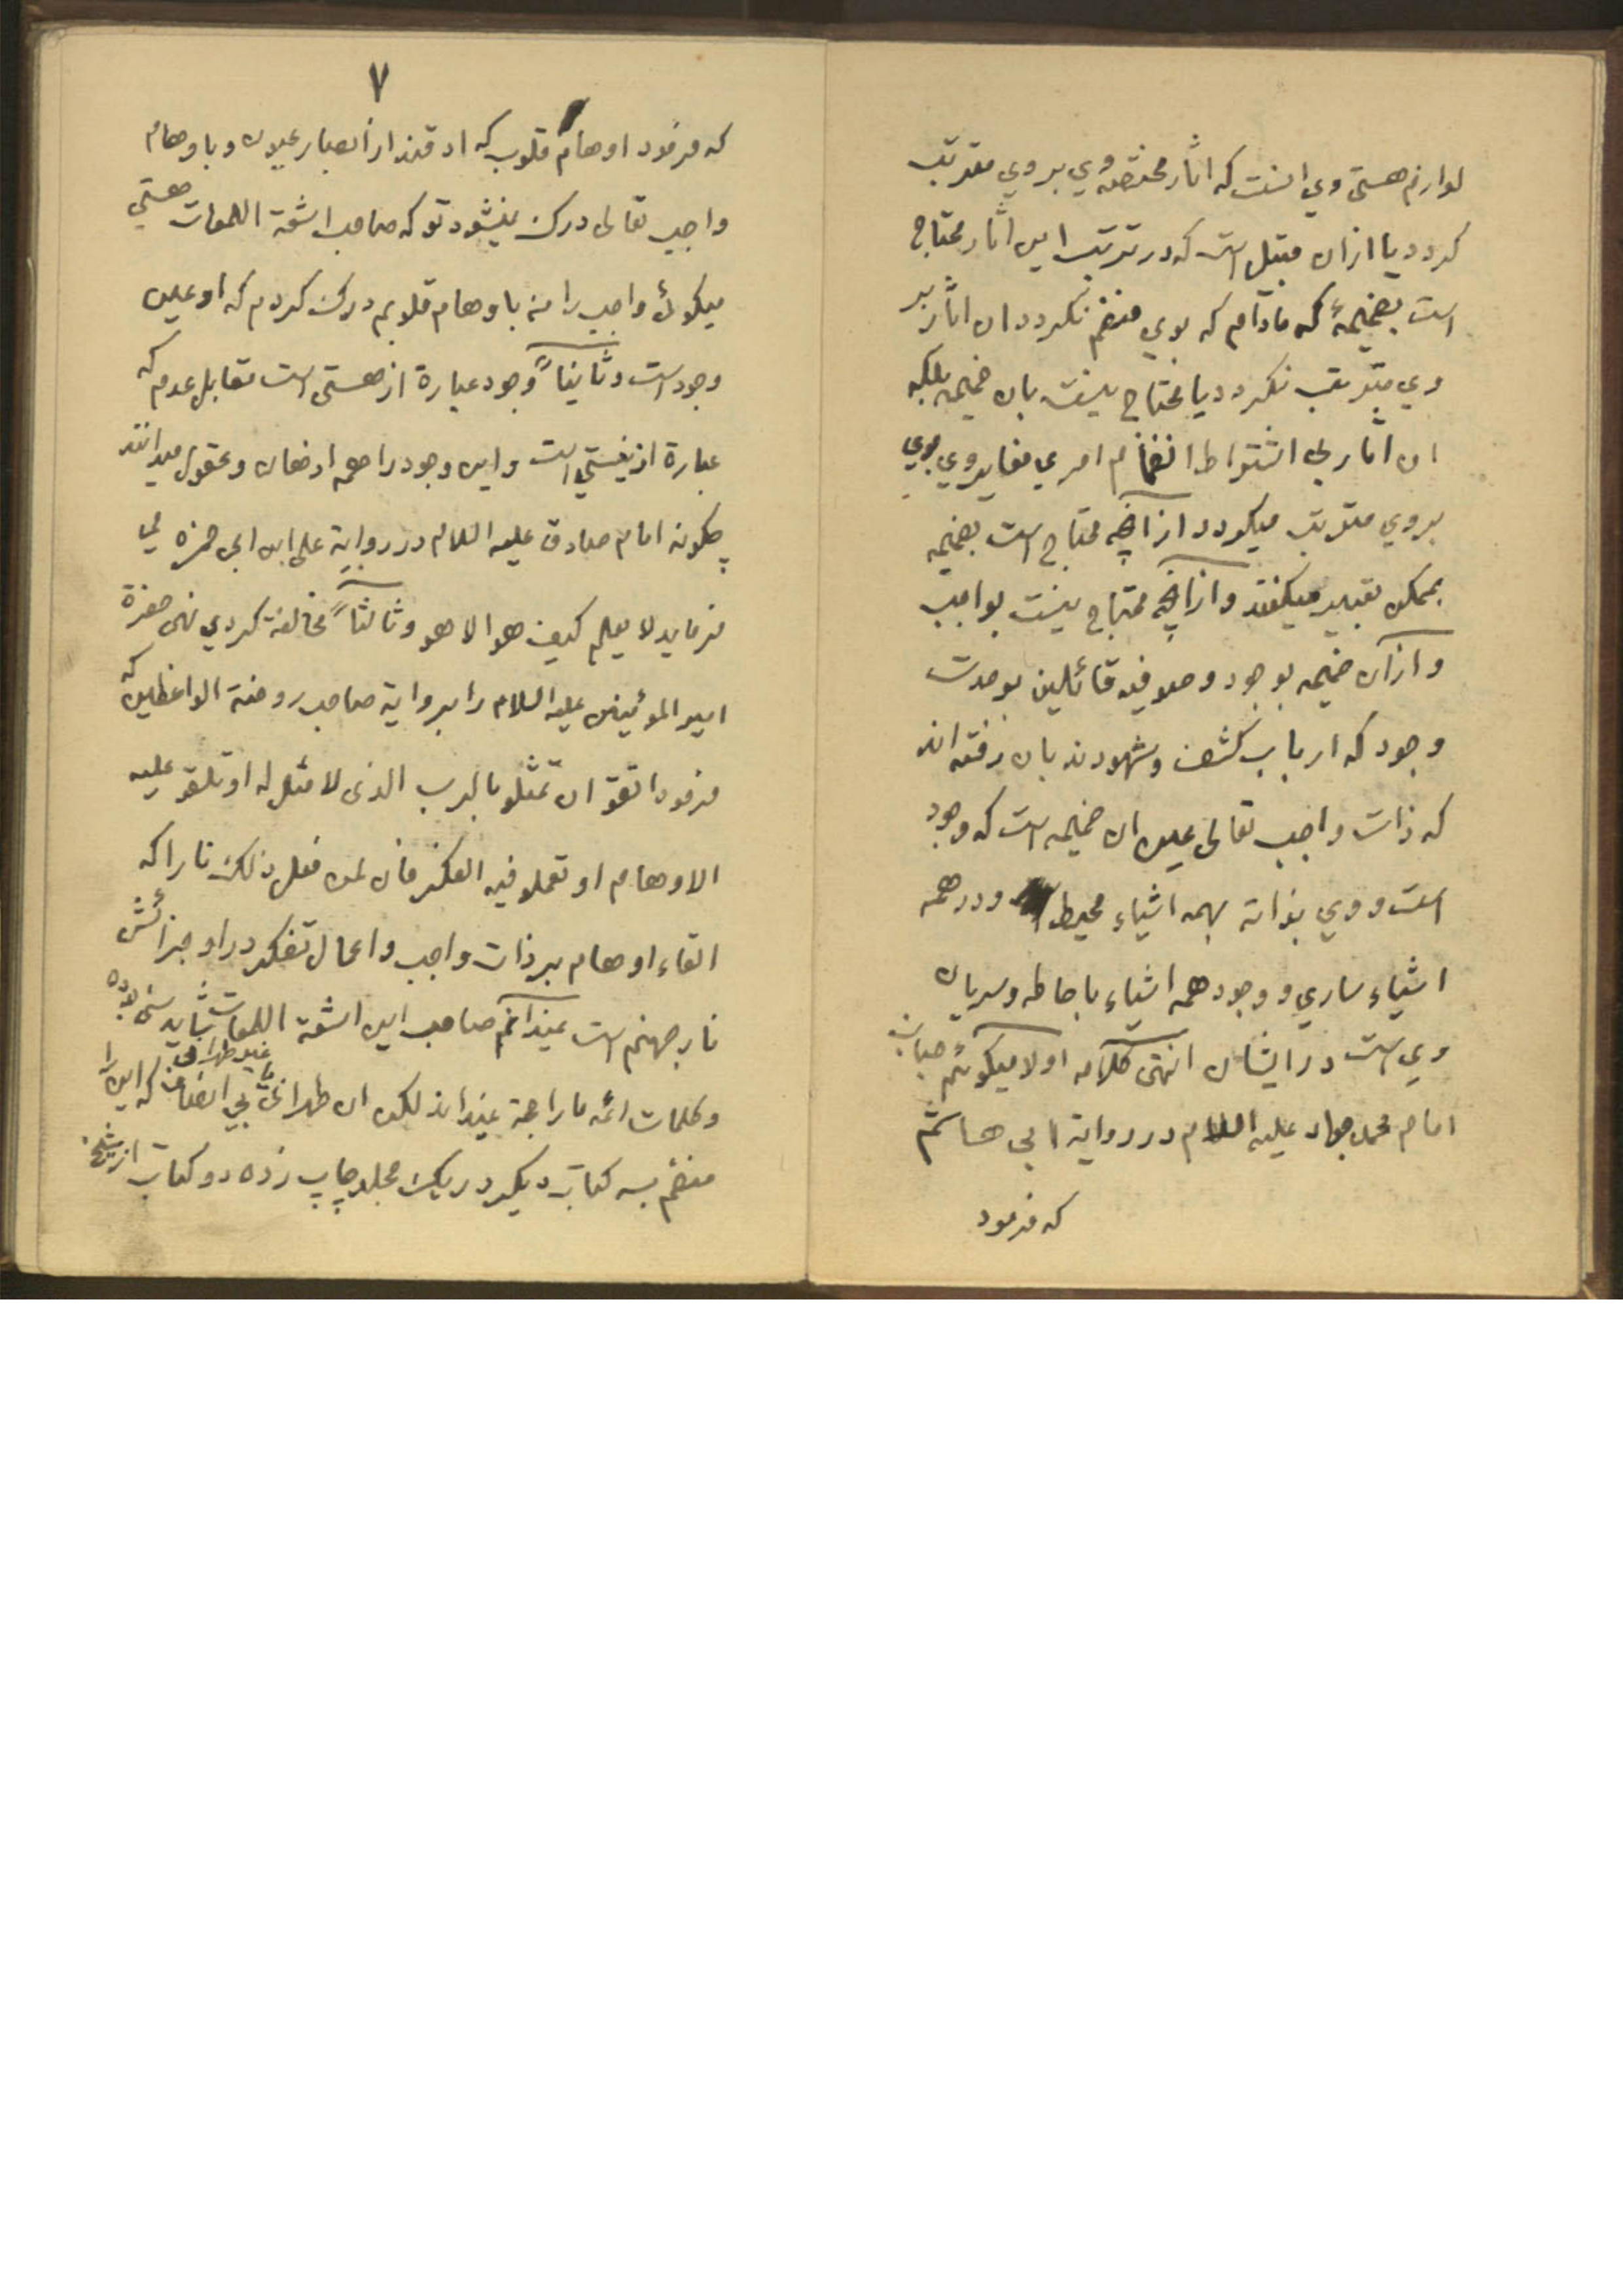 لوازم هستی وي است که اثار مختصه وي بروي مترتب
کردد یا ازان قبیل است که در ترتب این اثار محتاج
است بضمیمهٔ که مادام که بوي منضم نکردد ان اثار بر
وي مترتب نکردد یا محتاج نیست بان ضمیمه بلکه
ان اثار بی اشتراط انضمام امري مغایر وي بوي
بروي مترتب میکردد ازانچه محتاج است بضمیمه
بممکن تعبیر میکنند وازانچه محتاج نیست بواجب
وازان ضمیمه بوجود وصوفیه قائلین بوحدت
وجود که ارباب کشف وشهودند بان رفته اند
که ذات واجب تعالی عین ان ضمیمه است که وجود
است ووي بذاته بهمه اشیاء محیط ودر همه
اشیاء ساري ووجود همه اشیاء باحاطه وسریان
وي است در ایشان انتهی کلامه اولا میکوئیم جناب
امام محمد جواد علیه السلام در روایة ابی هاشم
که فرمود
۷
که فرمود اوهام قلوب که ادق‌اند از ابصار عیون وباوهام
واجب تعالی درک نمیشود تو که صاحب اشعة اللمعات هستي
میکوئي واجب را من باوهام قلوبم درک کردم که او عین
وجود است وثانیاً وجود عبارة از هستی است مقابل عدم که
عبارة از نیستي است واین وجود را همه اذهان وعقول میدانند
چکونه امام صادق علیه السلام در روایة علی ابن ابی حمزه می
فرماید لا یعلم کیف هو الا هو وثالثاً مخالفة کردي نهی حضرة
امیر المؤمنین علیه السلام را بروایة صاحب روضة الواعظین که
فرمود اتقوا ان تمثلو بالرب الذی لا مثل له او تلقو علیه
الاوهام او تعملو فیه الفکر فان لمن فعل ذلک نارا که
القاء اوهام بر ذات واجب واعمال تفکر در او جزائش
نار جهنم است نمیدانم صاحب این اشعة اللمعات شاید سنی بوده
وکلمات ائمه ما را حجة نمیداند لکن ان طهرانی یا غیر طهرانی بي انصاف که این را
منضم بسه کتاب دیکر در یک مجلد چاپ زده دو کتاب از شیخ